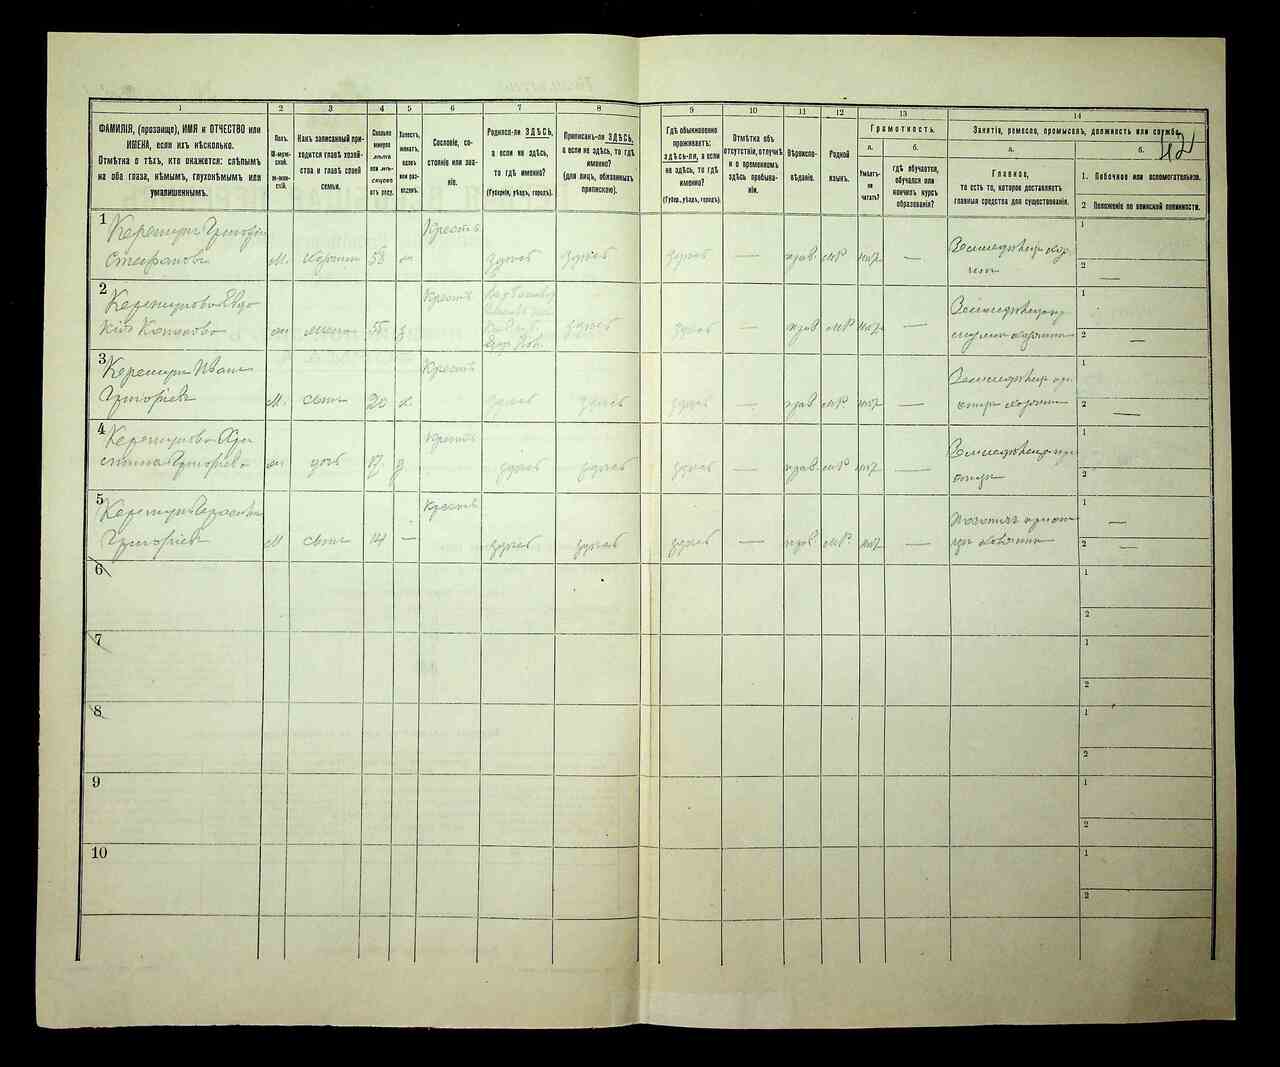 42
1
2
3
4
5
6
7
8
9
10
11
12
13
14
ФАМИЛІЯ, (прозвище), ИМЯ и ОТЧЕСТВО или
ИМЕНА, если ихъ нѣсколько.
Отмѣтка о тѣхъ, кто окажется: слѣпымъ
на оба глаза, нѣмымъ, глухонѣмымъ или
умалишеннымъ.
Полъ.
М-муж-
ской.
Ж-жен-
скій.
Какъ записанный при-
ходится главѣ хозяй-
ства и главѣ своей
семьи.
Сколько
минуло
лѣтъ
или мѣ-
сяцевъ
отъ роду.
Холостъ,
женатъ,
вдовъ
или раз-
веденъ.
Сословіе, со-
стояніе или зва-
ніе.
Родился-ли ЗДѢСЬ,
а если не здѣсь,
то гдѣ именно?
(Губернія, уѣздъ, городъ).
Приписанъ-ли ЗДѢСЬ,
а если не здѣсь, то гдѣ
именно?
(для лицъ, обязанныхъ
припискою).
Гдѣ обыкновенно
проживаетъ:
здѣсь-ли, а если
не здѣсь, то гдѣ
именно?
(Губер., уѣздъ, городъ).
Отмѣтка объ
отсутствіи, отлучкѣ
и о временномъ
здѣсь пребыва-
ніи.
Вѣроиспо-
вѣданіе.
Родной
языкъ.
Грамотность.
а.
Умѣетъ-
ли
читать?
б.
гдѣ обучается,
обучался или
кончилъ курсъ
образованія?
Занятіе, ремесло, промыселъ, должность или служба.
а.
Главное,
то есть то, которое доставляетъ
главныя средства для существованія.
б.
1. Побочное или вспомогательное.
2 Положеніе по воинской повинности.
1
Григорій
Стефановъ
М.
хозяинъ
58
Крестъ
здѣсь
здѣсь
здѣсь
—
прав
мр
нѣтъ
—
1
2
—
2
Крестъ
жена
55
здѣсь
здѣсь
—
прав
мр
нѣтъ
—
1
2
—
3
Иванъ
Григоріевъ
М.
сынъ
20
х.
Крестъ
здѣсь
здѣсь
здѣсь
—
прав
мр
нѣтъ
—
1
2
—
4
Хри
стина Григоріева
дочь
17
Крестъ
здѣсь
здѣсь
здѣсь
—
прав.
мр
нѣтъ
—
1
2
5
Григоріевъ
М
сынъ
14
—
Крестъ
здѣсь
здѣсь
здѣсь
—
прав.
мр.
нѣтъ
—
1
—
2
—
6
1
2
7
1
2
8
1
2
9
1
2
10
1
2